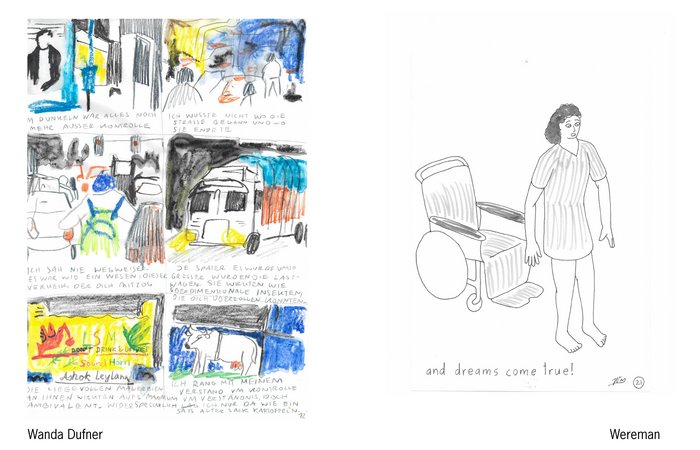 M DUNKELN WAR ALLES NOCH
MEHR AUSSER KONTROLLE
ICH WUSSTE NICHT WO DIE
STRASSE BEGANN UND WO
SIE ENDETE
ICH SAH NIE WEGWEISER
ES WAR WIE EIN WESEN, DIESER
VERKEHR, DER DICH MITZOG
JE SPÄTER ES WURDE UMSO
GRÖSSER WURDEN DIE LAST-
WAGEN. SIE WIRKTEN WIE
ÜBERDIMENSIONALE INSEKTEN,
DIE DICH ÜBERROLLEN KONNTEN.
DON'T DRINK &
Sound Horn
Ashok Leyland
DIE LIEBEVOLLEN MALEREIEN
AN IHNEN WIRKTEN AUFS MAXIMUM
AMBIVALENT, WIDERSPRÜCHLICH
ICH RANG MIT MEINEM
VERSTAND UM KONTROLLE
UM VERSTÄNDNIS, DOCH
ICH NUR DA WIE EIN
SACK KARTOFFELN.
12
and dreams come true!
23
Wanda Dufner
Wereman